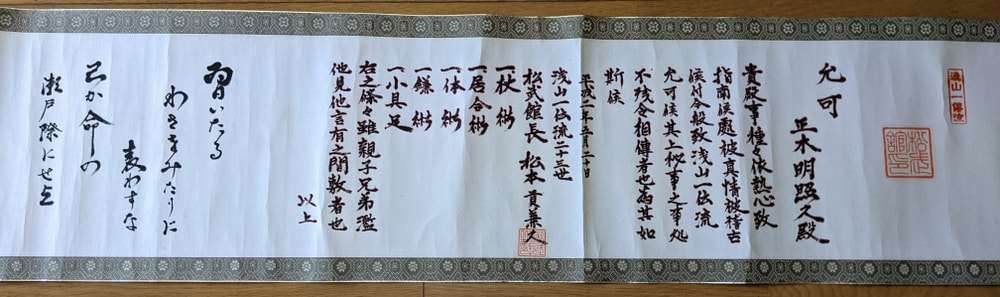 浅山一傳流
松武館之印
允可
正木明照久殿
貴殿事種々依熱心致
指南候處被真情被稽古
候付今般致浅山一伝流
允可候其上秘事之事処
不残令相傳者也為其如
斯候
平成二年五月二十日
浅山一伝流二十三世
松武館長 松本貫兼久
一杖術
一居合術
一体術
一鎌術
一小具足
右之條々雖親子兄弟濫
他見他言有之間敷者也
以上
習いたる
わざをみたりに
表わすな
己か命の
瀬戸際にせよ